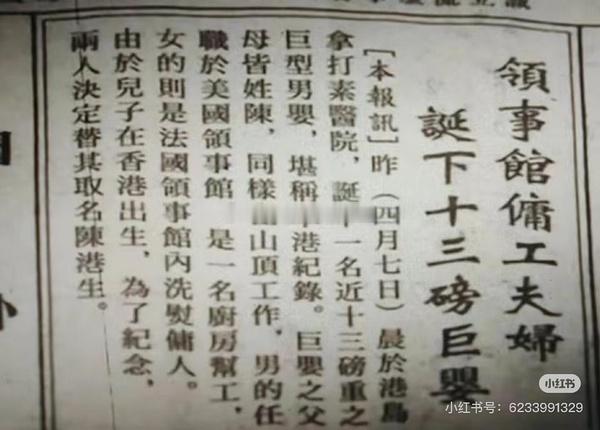 領事館傭工夫婦
誕下十三磅巨嬰
［本報訊］昨（四月七日）晨於港島
拿打素醫院，誕一名近十三磅重之
巨型男嬰，堪稱港紀錄。巨嬰之父
母皆姓陳，同樣山頂工作，男的任
職於美國領事館是一名廚房幫工，
女的則是法國領事館內洗熨傭人。
由於兒子在香港出生，為了紀念，
兩人決定替其取名陳港生。
小红书
小红书号：6233991329